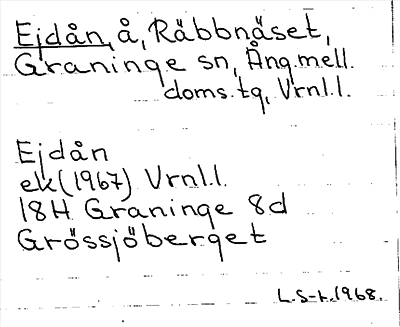 Ejdån, å, Räbbnäset,
Graninge sn, Ång.mell.
doms.tg, Vrnl.l.
Ejdån
ek (1967) Vrnl.l.
18H Graninge 8d
Grössjöberget
L.S-t. 1968.